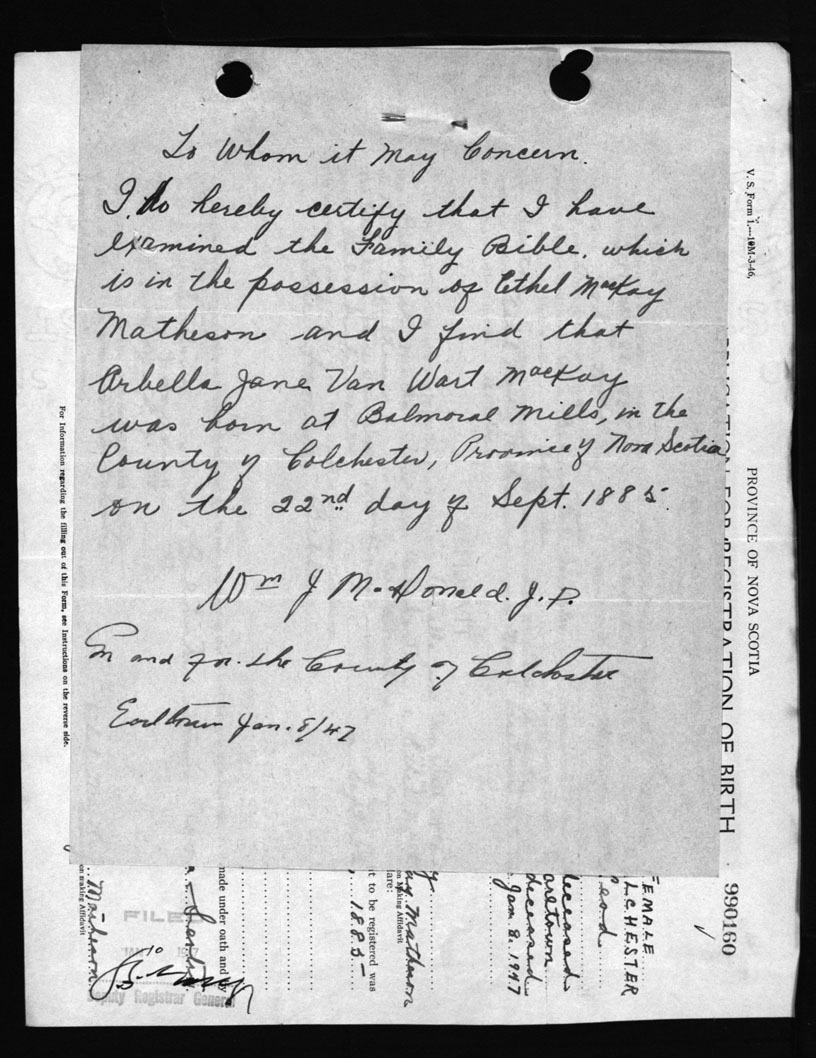 To Whom it May Concern.
I. Do hereby certify that I have
examined the Family Bible. which
is in the possession of Ethel MacKay
Matheson and I find that
Arbella Jane Van Wart MacKay
was born at Balmoral Mills, in the
County of Colchester, Province of Nova Scotia
on the 22nd day of Sept. 1885.
Wm J McDonald. J.P.
In and for the County of Colchester
Earltown Jan. 8/47
V. S. Form 1.—10M-3-46.
PROVINCE OF NOVA SCOTIA
FOR REGISTRATION OF BIRTH
990160
EMALE
LCHESTER
deceased
arltown
deceased
Jan 8. 1947
ay Matheson
on making Affidavit
lare:
t to be registered was
, 1885-
made under oath and
Matheson
on making Affidavit
FILE
10
Deputy Registrar General
For Information regarding the filling out of this Form, see Instructions on the reverse side.